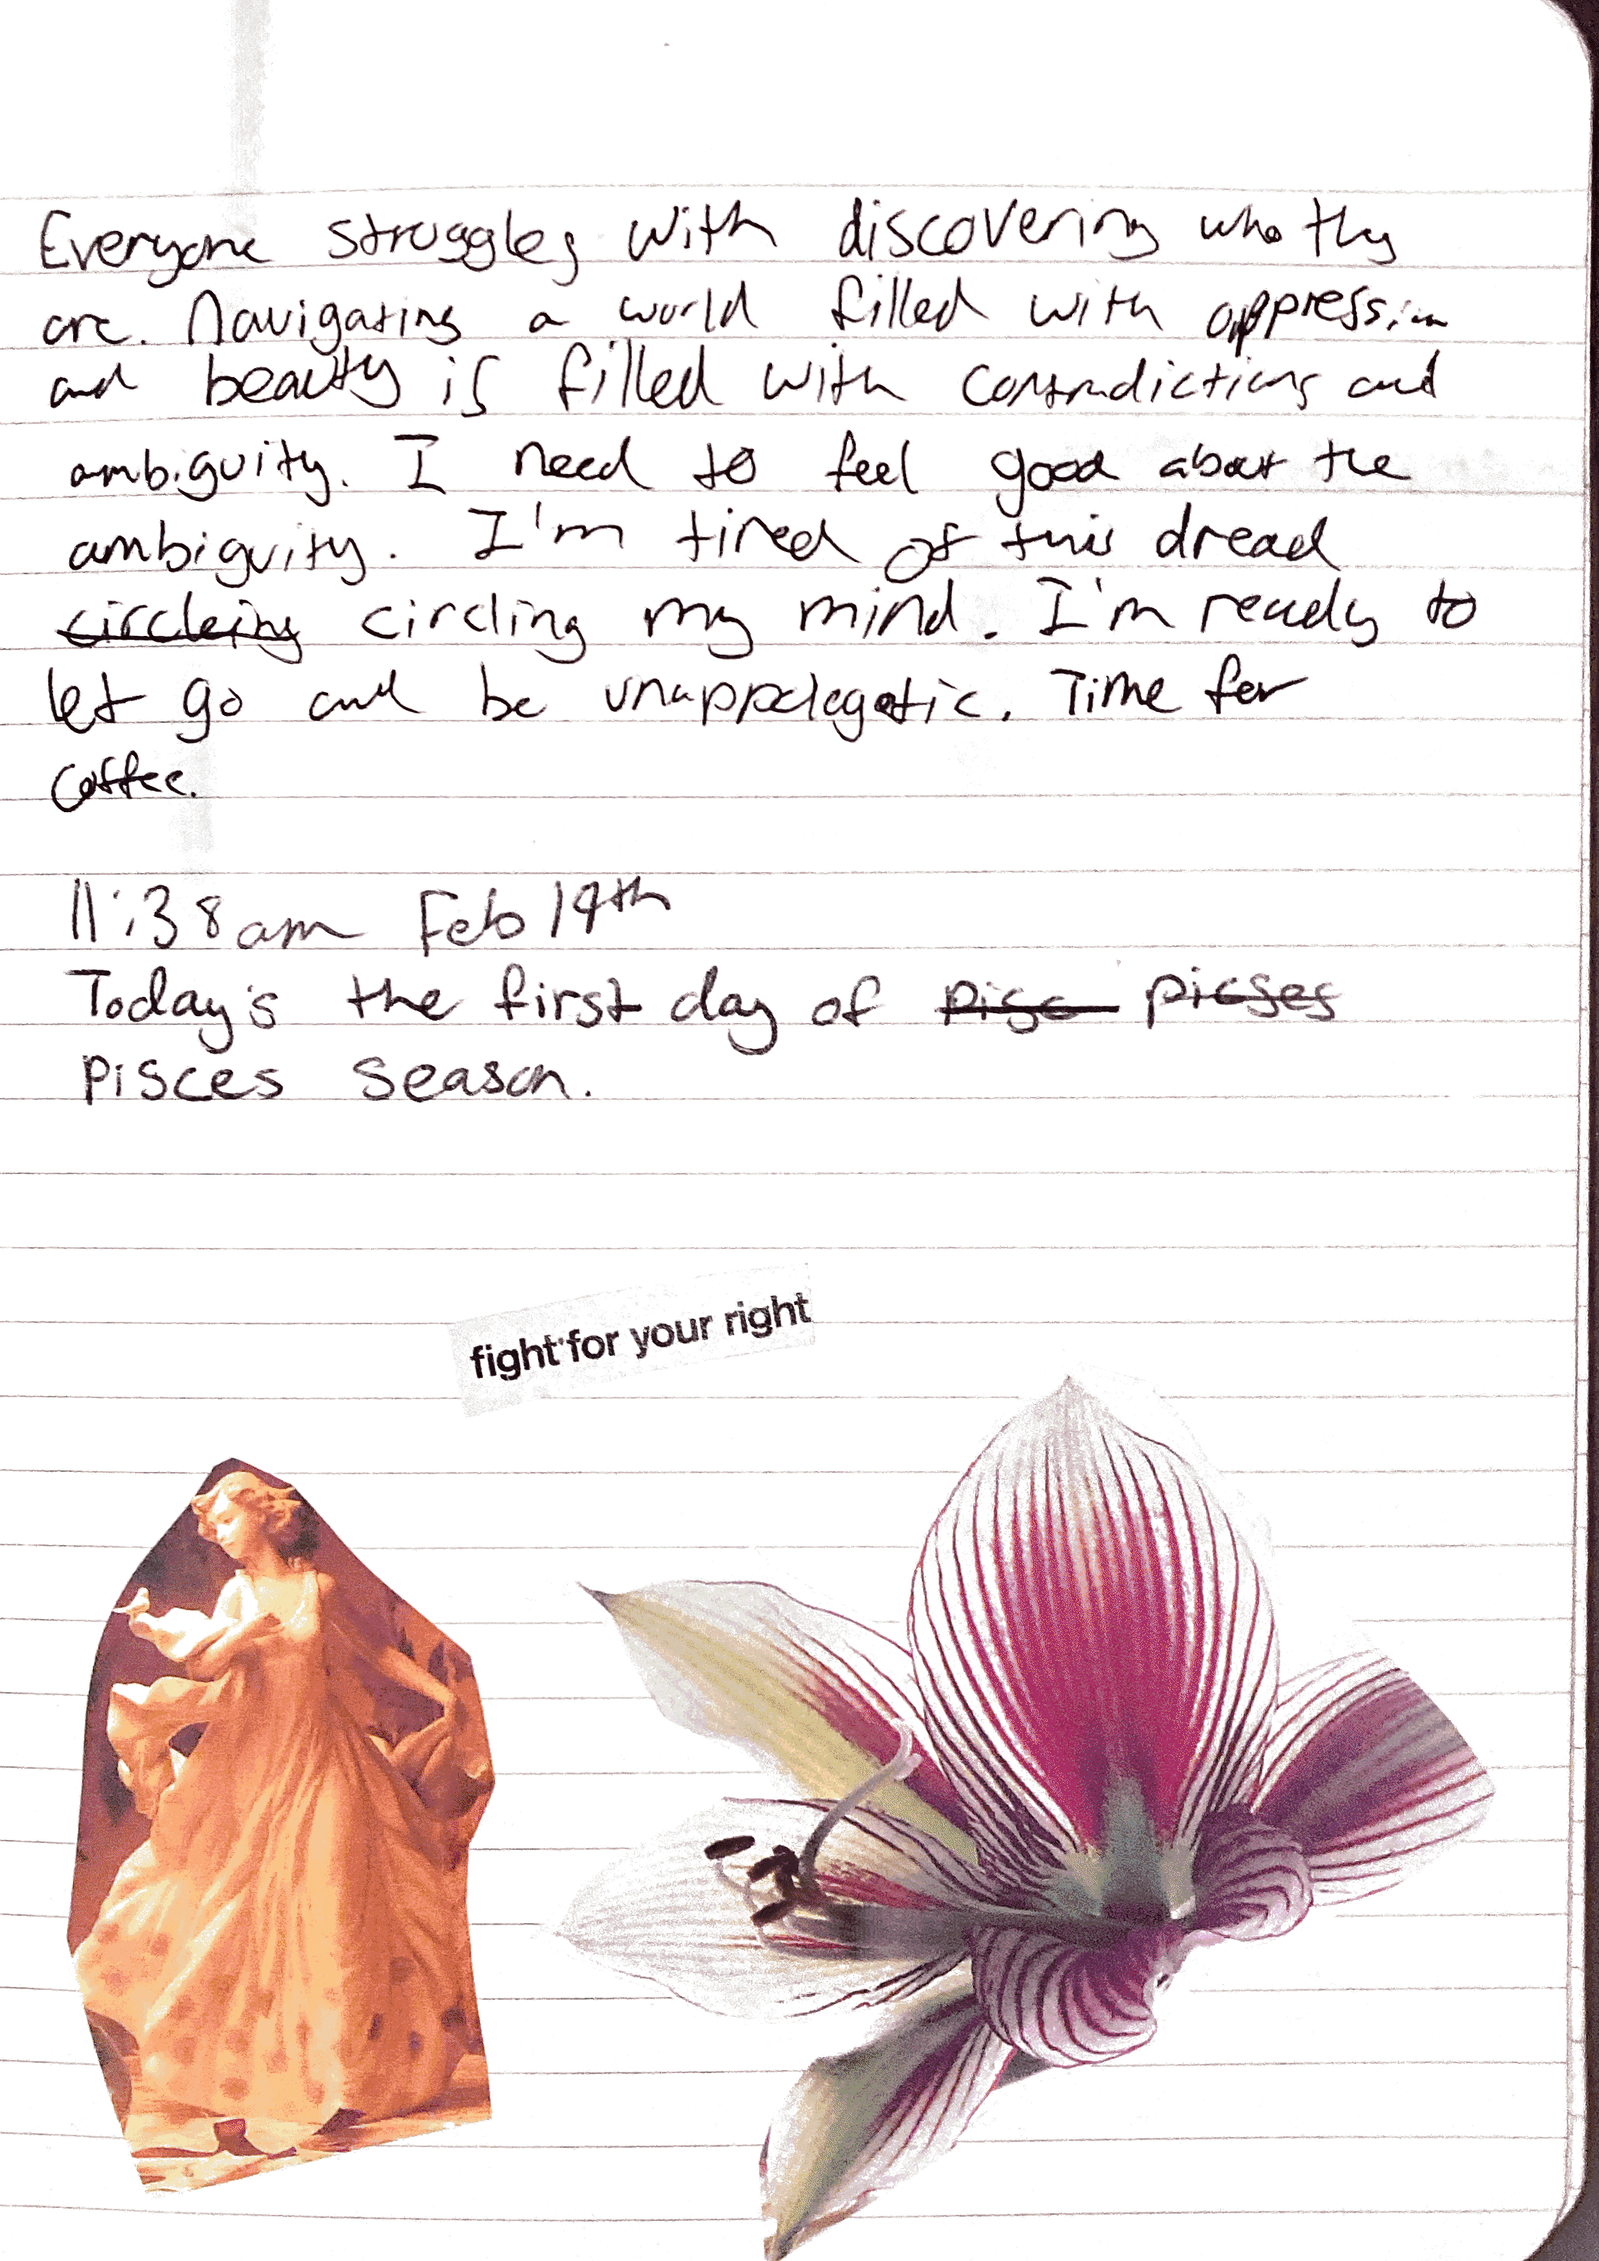 Everyone struggles with discovering who they
are. Navigating a world filled with oppression
and beauty is filled with contradictions and
ambiguity. I need to feel good about the
ambiguity. I'm tired of this dread
circleing circling my mind. I'm ready to
let go and be unappologetic. Time for
coffee.
11:38am Feb 19th
Today's the first day of pisc picses
pisces season.
fight for your right